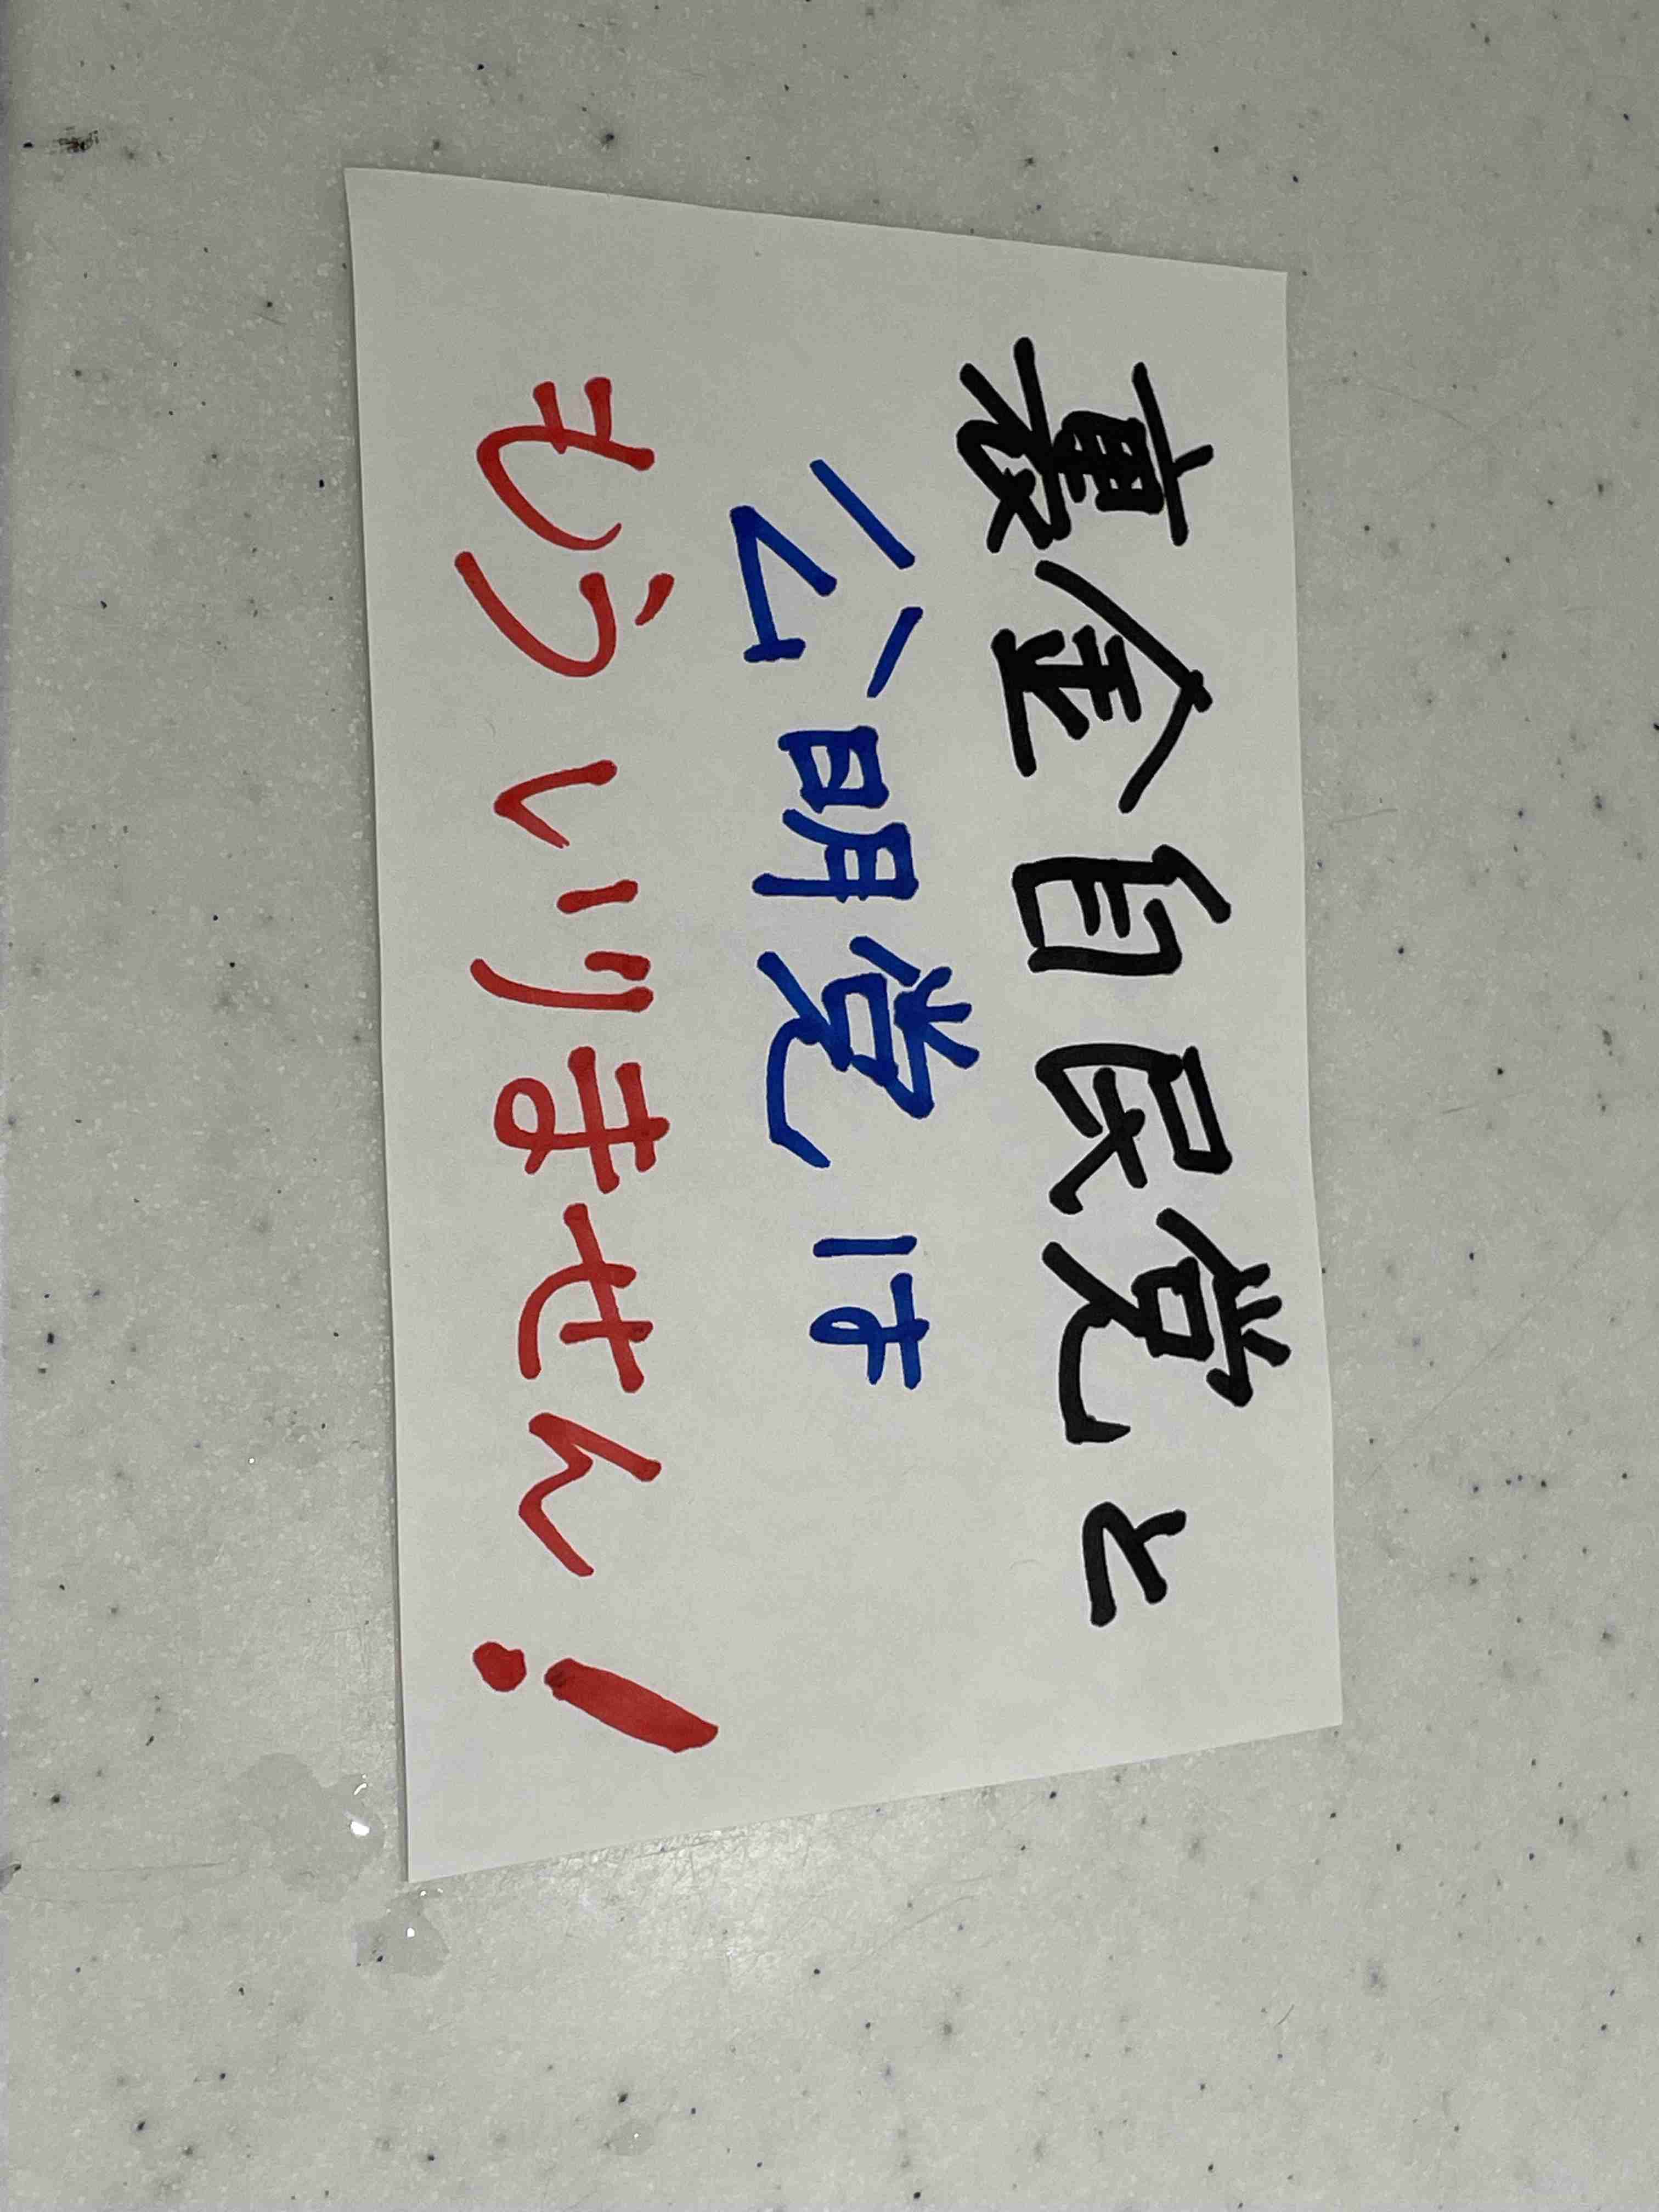 裏金自民党と
公明党は
もういりません!